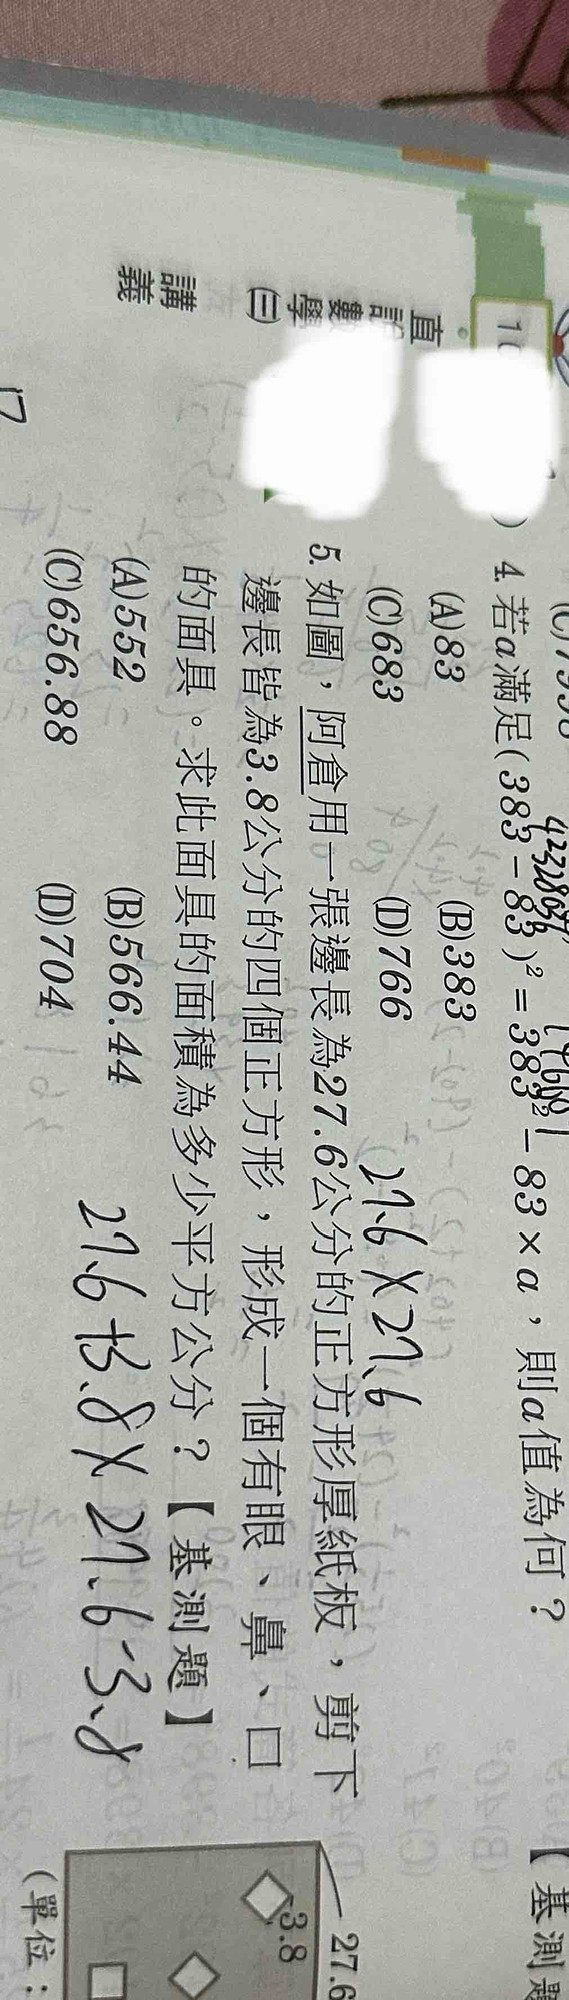 直
數學
㈢
講義
4. 若a滿足(383－83)²＝383²－83×a，則a值為何？
(A)83 (B)383
(C)683 (D)766
5. 如圖，阿倉用一張邊長為27.6公分的正方形厚紙板，剪下
邊長皆為3.8公分的四個正方形，形成一個有眼、鼻、口
的面具。求此面具的面積為多少平方公分？【基測題】
(A)552 (B)566.44
(C)656.88 (D)704
27.6×27.6
27.6+3.8×27.6-3.8
27.6
3.8
(單位：
【基測題